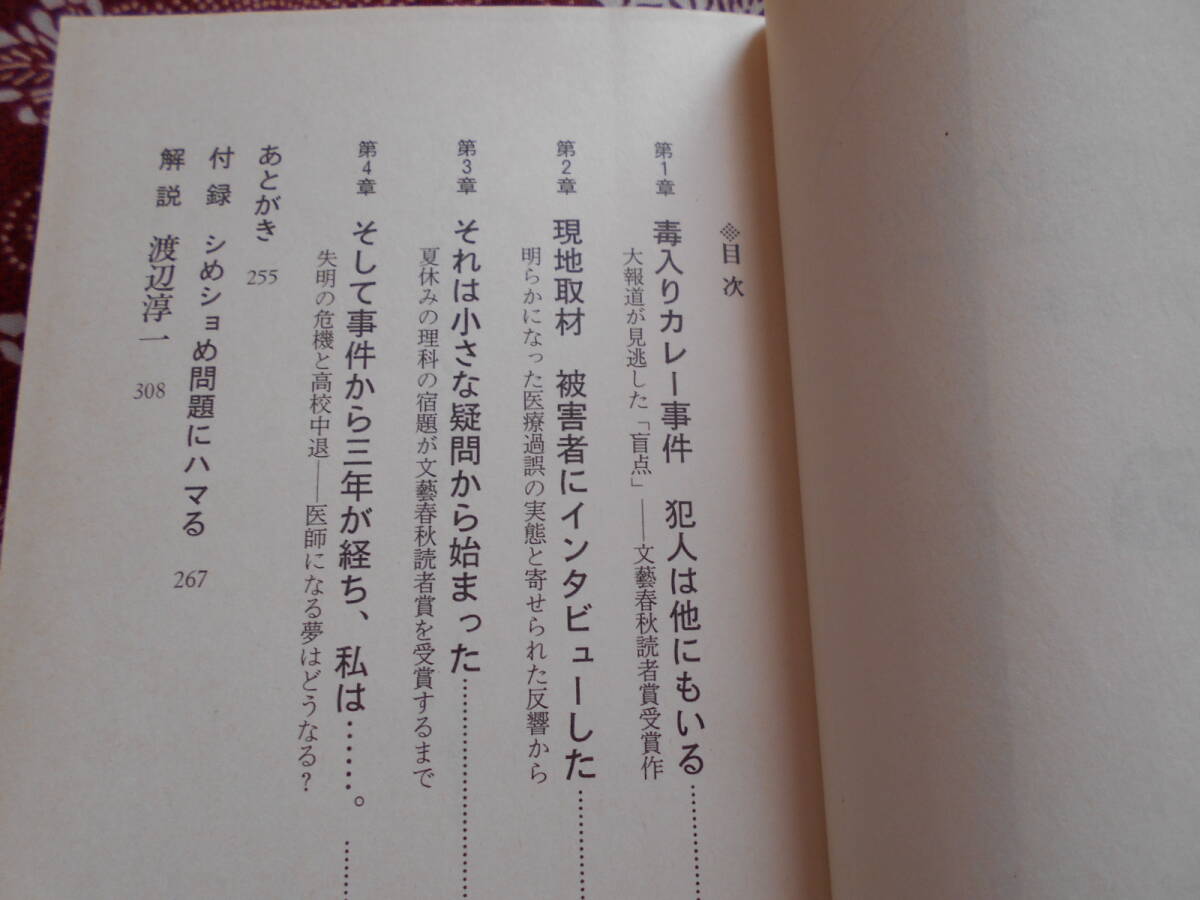 ※目次
第1章 毒入りカレー事件 犯人は他にもいる…………
大報道が見逃した「盲点」――文藝春秋読者賞受賞作
第2章 現地取材 被害者にインタビューした…………
明らかになった医療過誤の実態と寄せられた反響から
第3章 それは小さな疑問から始まった…………………
夏休みの理科の宿題が文藝春秋読者賞を受賞するまで
第4章 そして事件から三年が経ち、私は……。 ……
失明の危機と高校中退――医師になる夢はどうなる?
あとがき 255
付録 シめショめ問題にハマる 267
解説 渡辺淳一 308